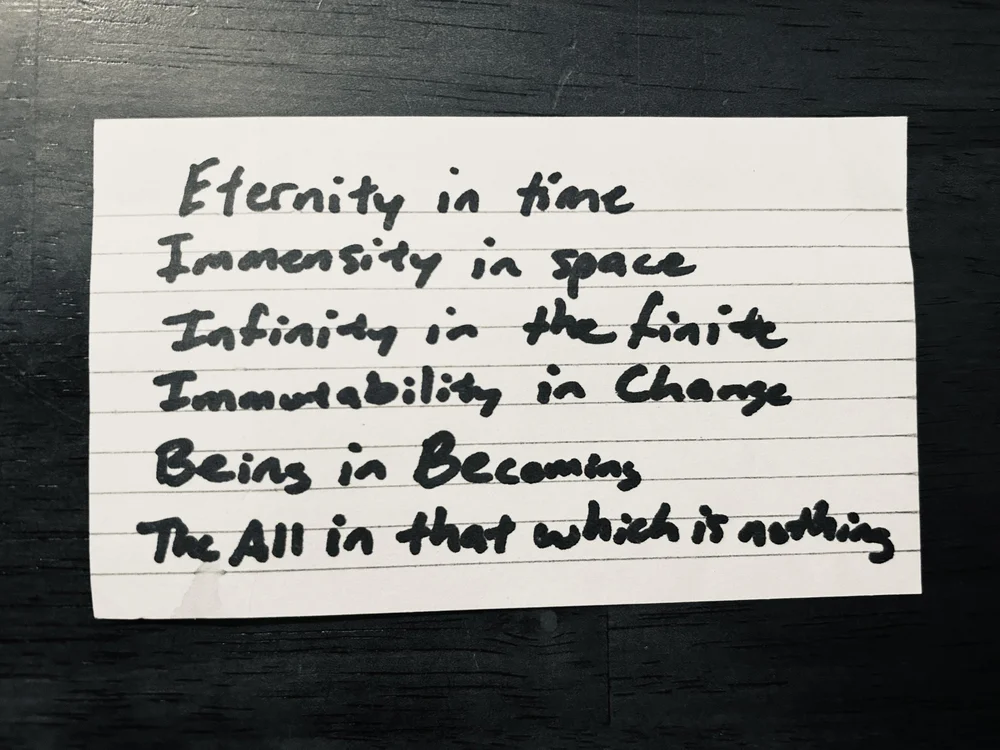 Eternity in time
Immensity in space
Infinity in the finite
Immutability in Change
Being in Becoming
The All in that which is nothing